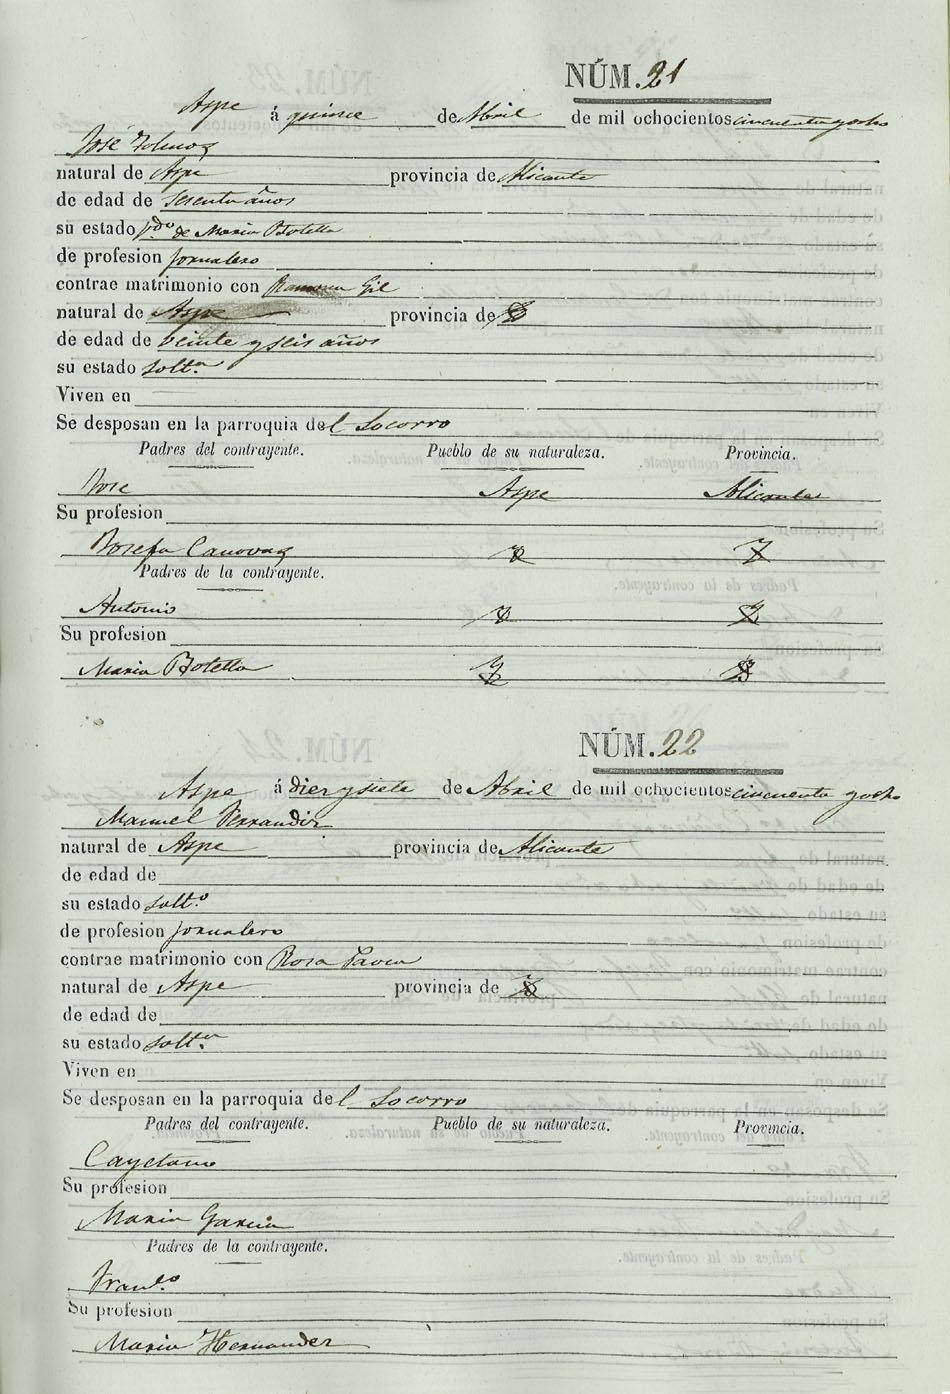 NÚM. 21
Aspe á quince de Abril de mil ochocientos cincuenta y ocho
José
natural de Aspe provincia de Alicante
de edad de sesenta años
su estado v.do de Maria Botella
de profesion jornalero
contrae matrimonio con Ramona Gil
natural de Aspe provincia de
de edad de veinte y seis años
su estado solt.a
Viven en
Se desposan en la parroquia del Socorro
Padres del contrayente. Pueblo de su naturaleza. Provincia.
Jose Aspe Alicante
Su profesion
Josefa Canovas
Padres de la contrayente.
Antonio
Su profesion
Maria Botella
NÚM. 22
Aspe á diez y siete de Abril de mil ochocientos cincuenta y ocho
Manuel Ferrandiz
natural de Aspe provincia de Alicante
de edad de
su estado solt.o
de profesion jornalero
contrae matrimonio con Rosa Pavia
natural de Aspe provincia de
de edad de
su estado solt.a
Viven en
Se desposan en la parroquia del Socorro
Padres del contrayente. Pueblo de su naturaleza. Provincia.
Cayetano
Su profesion
Maria Garcia
Padres de la contrayente.
Fran.co
Su profesion
Maria Hernandez